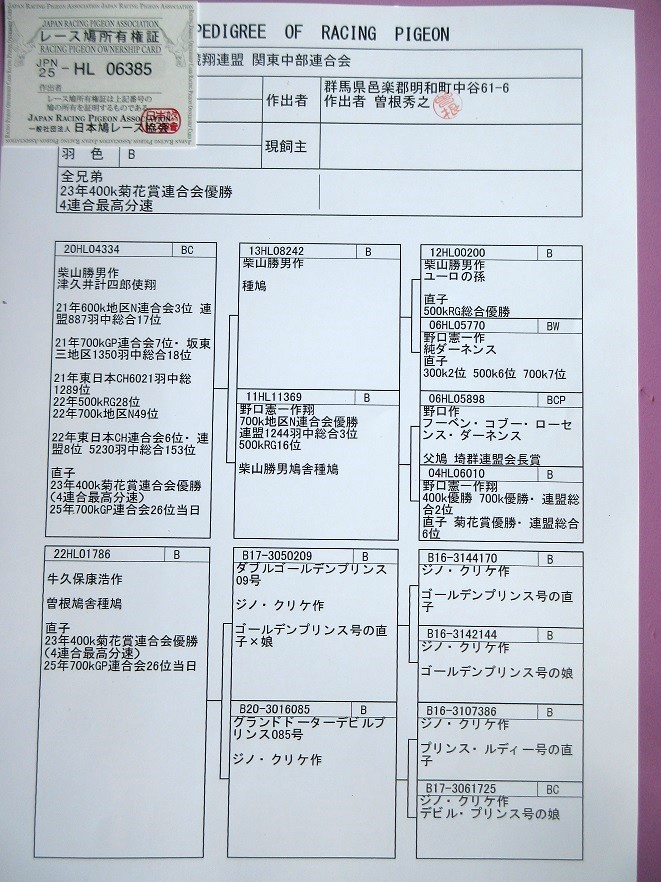 JAPAN RACING PIGEON ASSOCIATION
レース鳩所有権証
RACING PIGEON OWNERSHIP CARD
JPN
25 - HL 06385
作出者
レース鳩所有権証は上記番号の
鳩の所有を証明するものである
JAPAN RACING PIGEON ASSOCIATION
一般社団法人 日本鳩レース協会
PEDIGREE OF RACING PIGEON
翔連盟 関東中部連合会
作出者
群馬県邑楽郡明和町中谷61-6
作出者 曽根秀之
羽 色 B
現飼主
全兄弟
23年400k菊花賞連合会優勝
4連合最高分速
20HL04334 BC
柴山勝男作
津久井計四郎使翔
21年600k地区N連合会3位 連
盟887羽中総合17位
21年700kGP連合会7位・坂東
三地区1350羽中総合18位
21年東日本CH6021羽中総
1289位
22年500kRG28位
22年700k地区N49位
22年東日本CH連合会6位・連
盟8位 5230羽中総合153位
直子
23年400k菊花賞連合会優勝
(4連合最高分速)
25年700kGP連合会26位当日
22HL01786 B
牛久保康浩作
曽根鳩舎種鳩
直子
23年400k菊花賞連合会優勝
(4連合最高分速)
25年700kGP連合会26位当日
13HL08242 B
柴山勝男作
種鳩
11HL11369 B
野口憲一作翔
700k地区N連合会優勝
連盟1244羽中総合3位
500kRG16位
柴山勝男鳩舎種鳩
B17-3050209 B
ダブルゴールデンプリンス
09号
ジノ・クリケ作
ゴールデンプリンス号の直
子×娘
B20-3016085 B
グランドドーターデビルプ
リンス085号
ジノ・クリケ作
12HL00200 B
柴山勝男作
ユーロの孫
直子
500kRG総合優勝
06HL05770 BW
野口憲一作
純ダーネンス
直子
300k2位 500k6位 700k7位
06HL05898 BCP
野口作
フーベン・コブー・ローセ
ンス・ダーネンス
父鳩 埼群連盟会長賞
04HL06010 B
野口憲一作翔
400k優勝 700k優勝・連盟総
合2位
直子 菊花賞優勝・連盟総合
6位
B16-3144170 B
ジノ・クリケ作
ゴールデンプリンス号の直
子
B16-3142144 B
ジノ・クリケ作
ゴールデンプリンス号の娘
B16-3107386 B
ジノ・クリケ作
プリンス・ルディー号の直
子
B17-3061725 BC
ジノ・クリケ作
デビル・プリンス号の娘